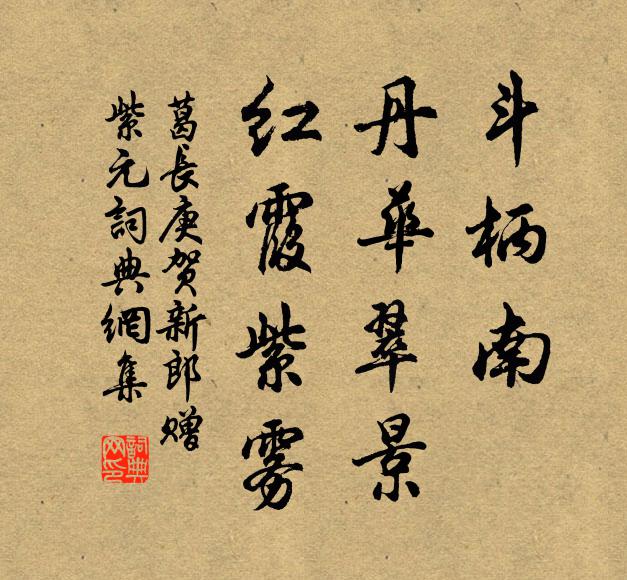 斗柄南
丹華翠景
紅霞紫雾
葛長庚賀新郎赠
紫元詞典網集
詞典网印